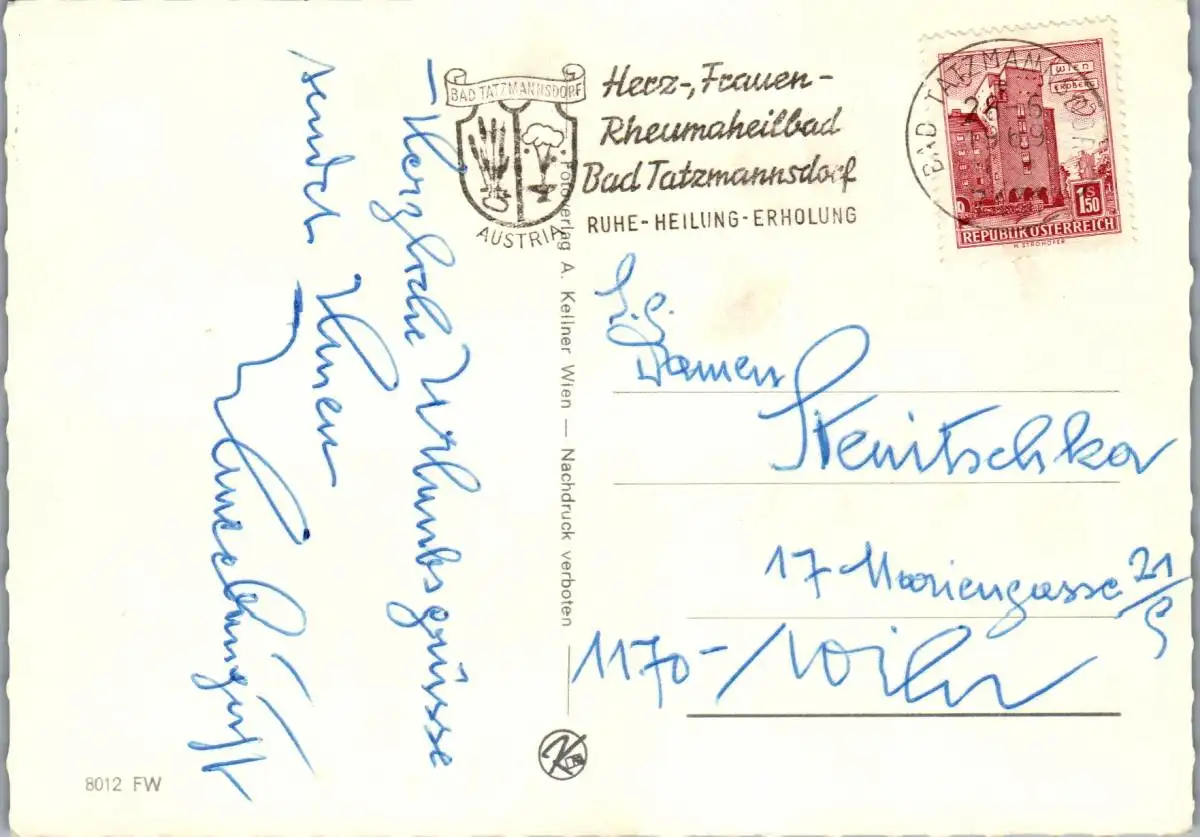 — Herzliche Urlaubsgrüsse
sendet Ihnen
BAD TATZMANNSDORF
AUSTRIA
Herz-, Frauen-
Rheumaheilbad
Bad Tatzmannsdorf
RUHE-HEILUNG-ERHOLUNG
BAD TATZMANNSDORF
1969
WIEN
ERDBERG
S 1.50
REPUBLIK ÖSTERREICH
H. STROHOFER
Fotoverlag A. Kellner Wien — Nachdruck verboten
Damen
Stenitschka
17 Mariengasse 21/
1170-Wien
K
8012 FW